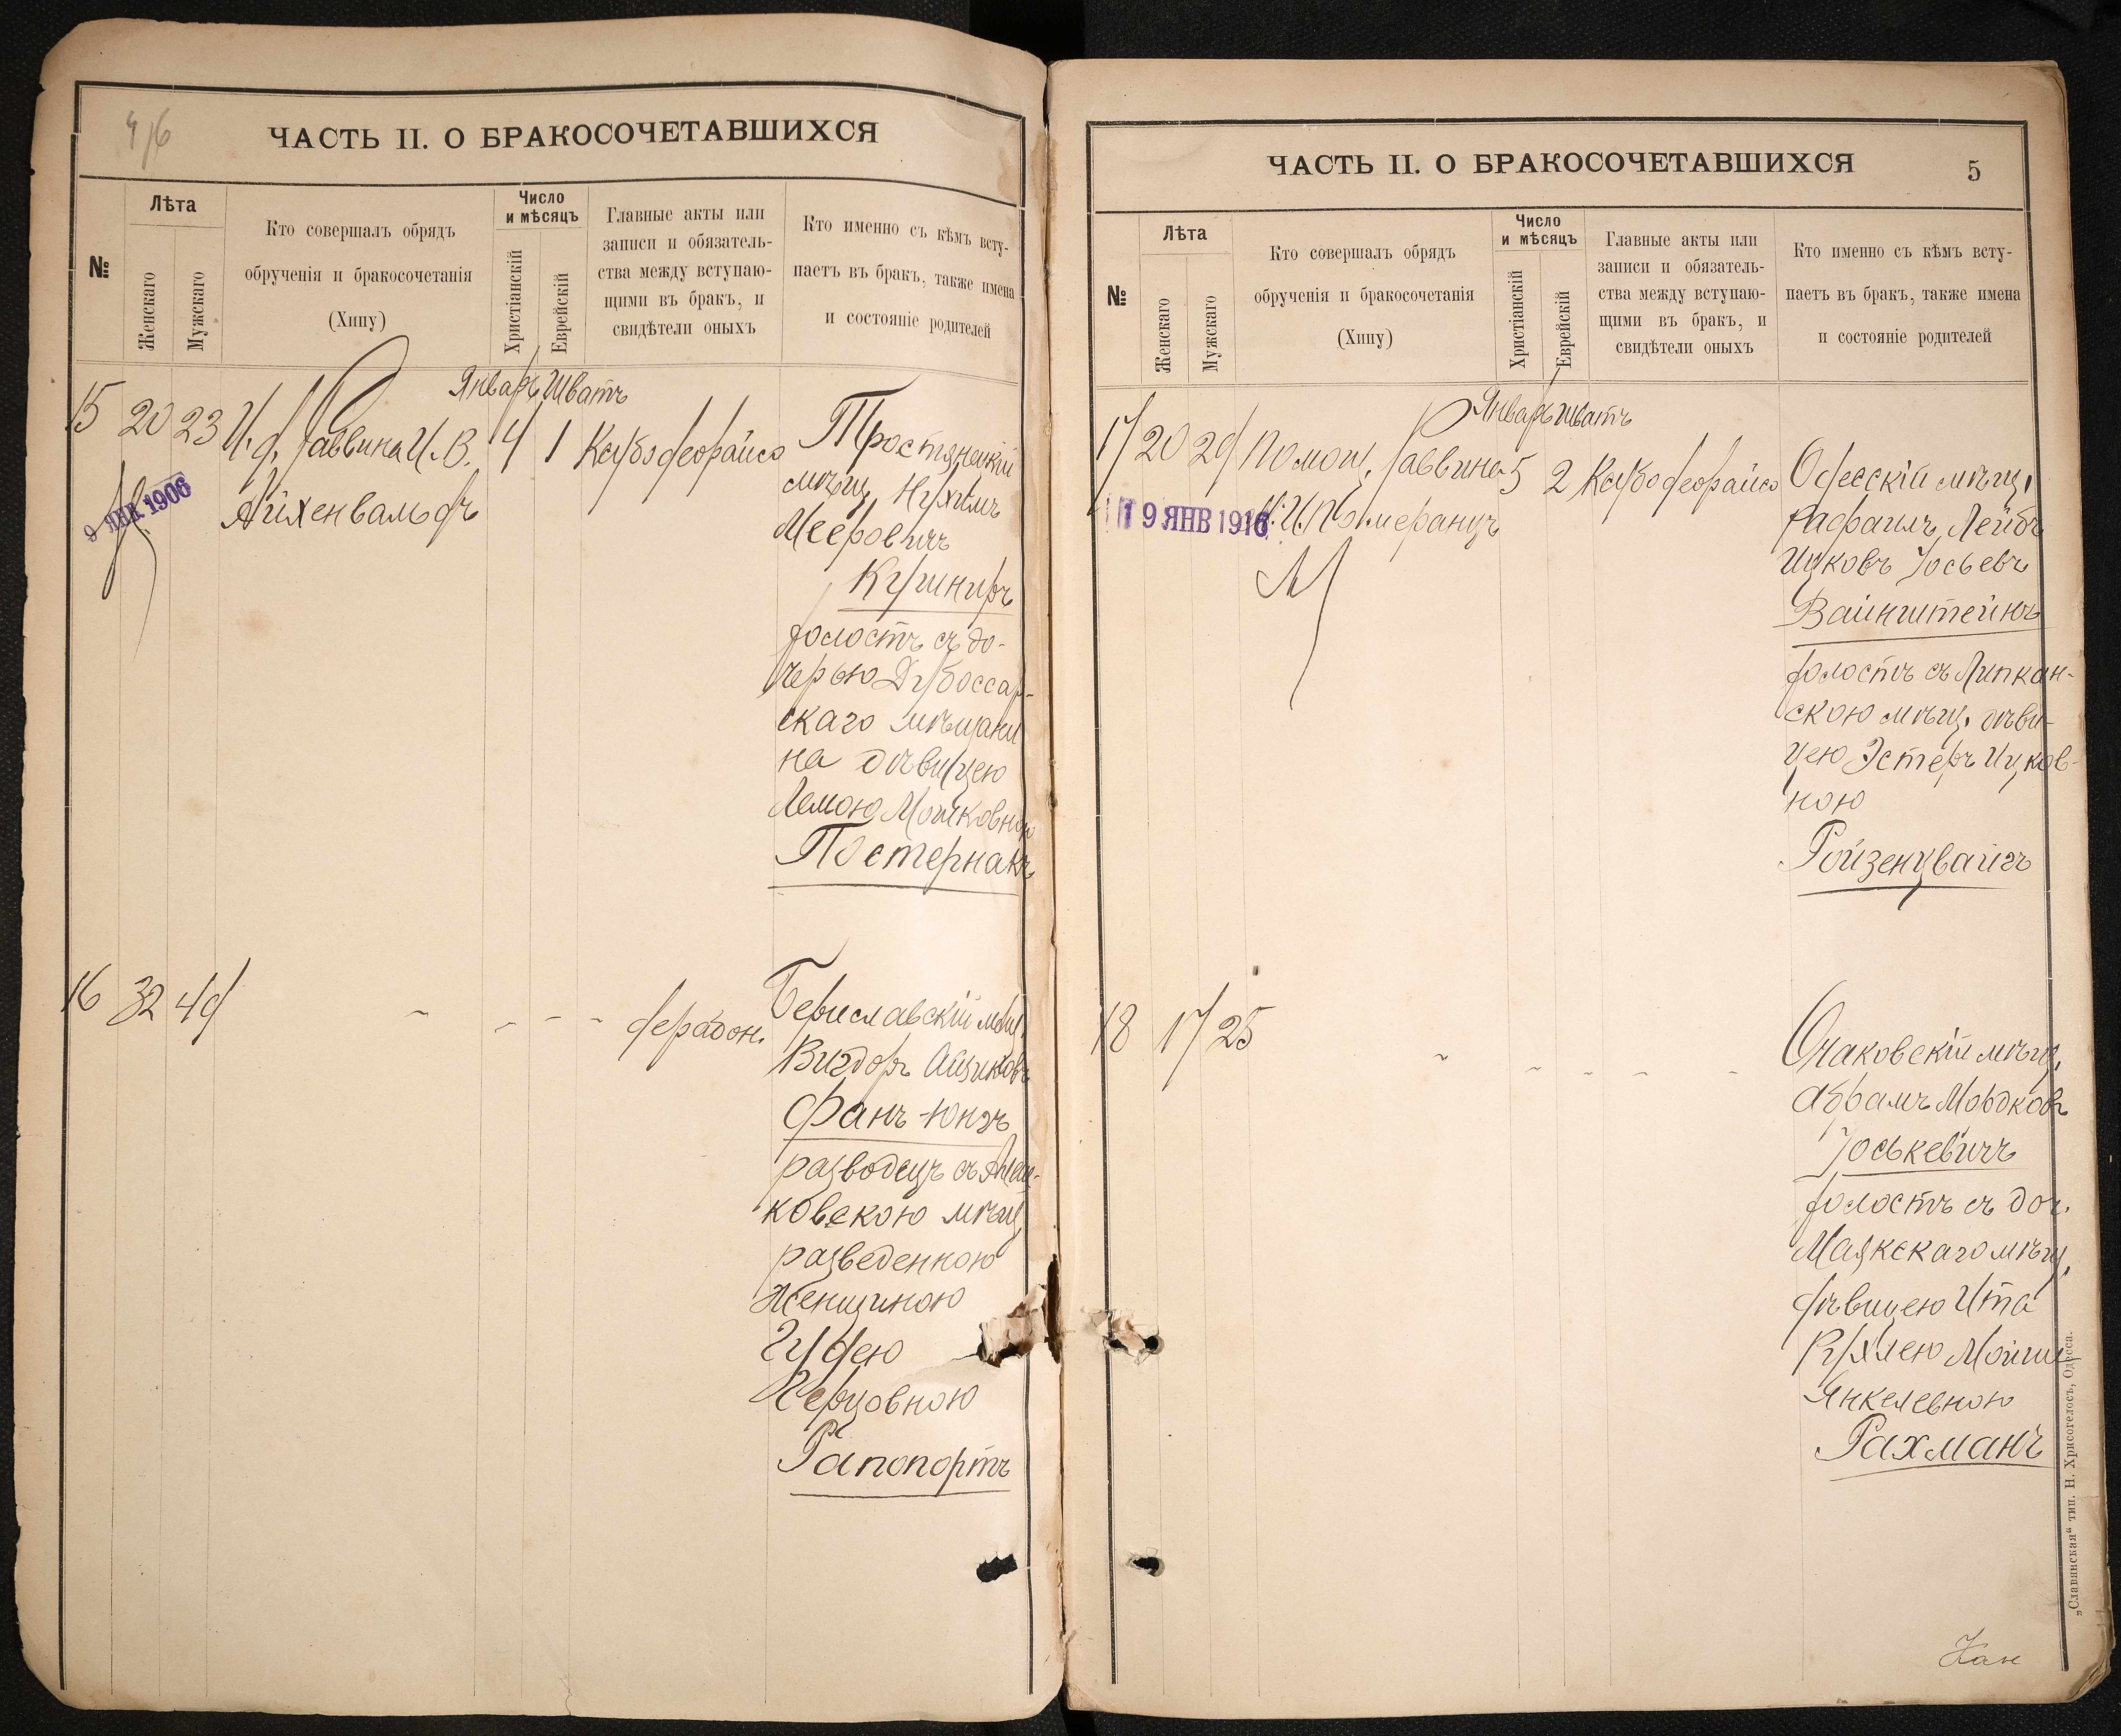 4/6
ЧАСТЬ II. О БРАКОСОЧЕТАВШИХСЯ
№
Лѣта
Женскаго
Мужскаго
Кто совершалъ обрядъ
обрученія и бракосочетанія
(Хипу)
Число
и мѣсяцъ
Христіанскій
Еврейскій
Главные акты или
записи и обязатель-
ства между вступаю-
щими въ бракъ, и
свидѣтели оныхъ
Кто именно съ кѣмъ всту-
паетъ въ бракъ, также имена
и состояніе родителей
Январь Шватъ
15 20 23 И. д. Раввина И. В. 4 1
Айхенвальдъ
9 ЯНВ 1906
Тростянецкій
мѣщ. Нухимъ
Мееровичъ
Кушниръ
холостъ съ до-
черью Дубоссар-
скаго мѣщани
на дѣвицею
Мошковною
Постернакъ
16 32 49
Бериславскій мѣщ.
Вигдоръ Айзиковъ
Фанъ-Юнгъ
разводецъ съ Алеш-
ковскою мѣщ.
разведенною
женщиною
Герцовною
Рапопортъ
ЧАСТЬ II. О БРАКОСОЧЕТАВШИХСЯ
5
№
Лѣта
Женскаго
Мужскаго
Кто совершалъ обрядъ
обрученія и бракосочетанія
(Хипу)
Число
и мѣсяцъ
Христіанскій
Еврейскій
Главные акты или
записи и обязатель-
ства между вступаю-
щими въ бракъ, и
свидѣтели оныхъ
Кто именно съ кѣмъ всту-
паетъ въ бракъ, также имена
и состояніе родителей
Январь Шватъ
17 20 29 Помощ. Раввина 5 2
Померанцъ
19 ЯНВ 1916
Одесскій мѣщ.
Рафаилъ Лейбъ
Ицковъ Іосьевъ
Вайнштейнъ
холостъ съ Липкан-
скою мѣщ. дѣви-
цею Эстеръ Ицков-
ною
Ройзенцвайгъ
18 17 25
Очаковскій мѣщ.
Абрамъ Мордковъ
Іоськевичъ
холостъ съ доч.
Маякскаго мѣщ.
дѣвицею Ита
Рухлею
Янкелевною
Рахманъ
„Славянская“ тип. Н. Хрисогелосъ, Одесса.